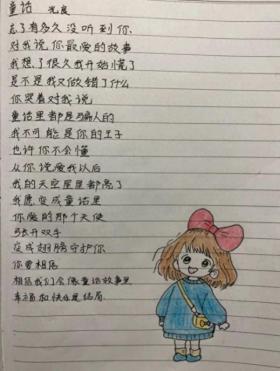 童话 光良
忘了有多久没听到你
对我说你最爱的故事
我想了很久我开始慌了
是不是我又做错了什么
你哭着对我说
童话里都是骗人的
我不可能是你的王子
也许你不会懂
从你说爱我以后
我的天空星星都亮了
我愿变成童话里
你爱的那个天使
张开双手
变成翅膀守护你
你要相信
相信我们会像童话故事里
幸福和快乐是结局